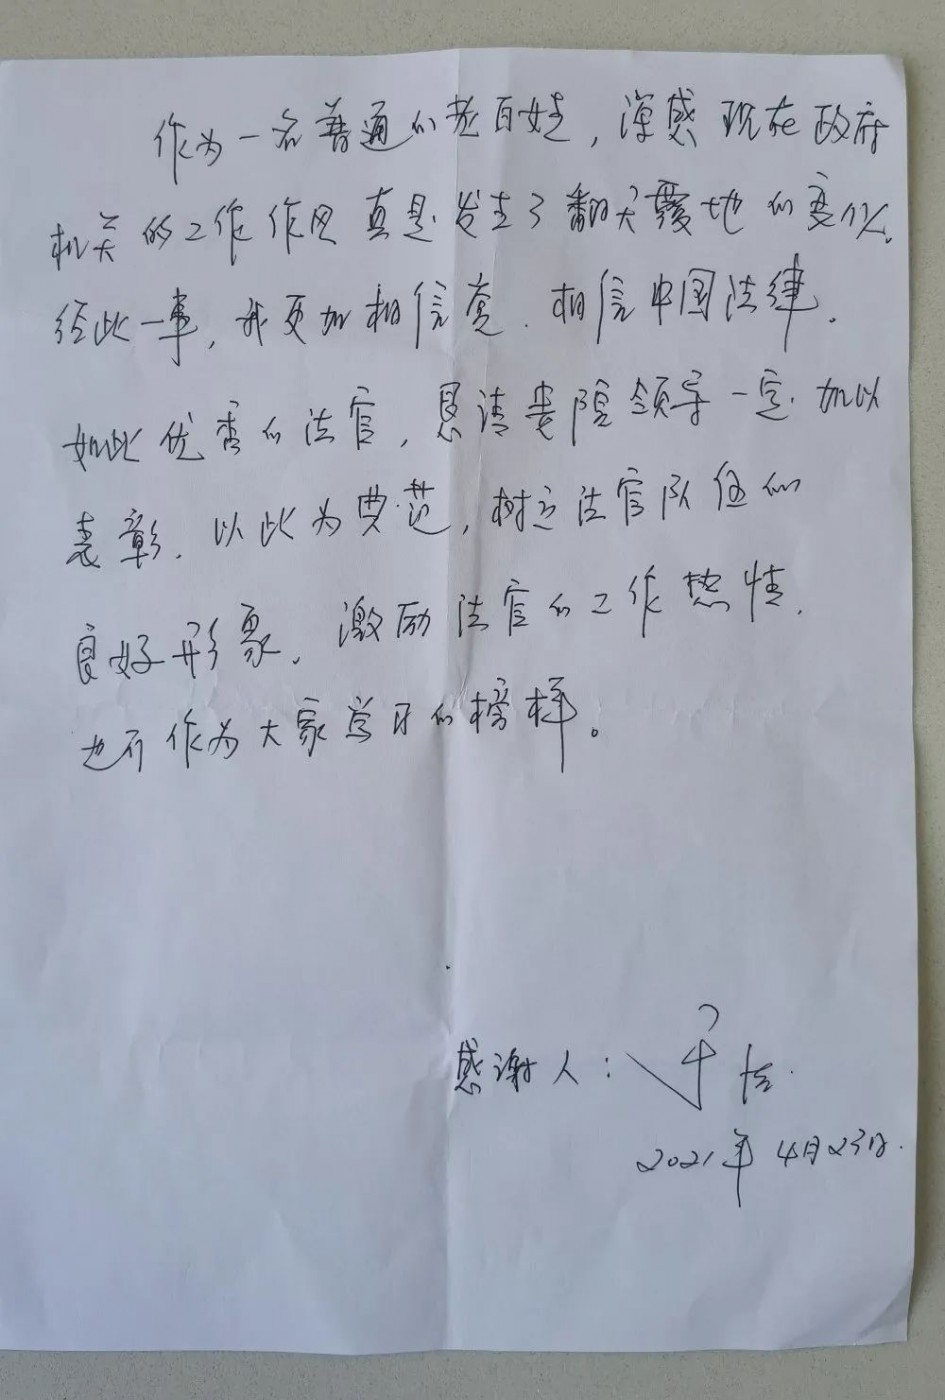 作为一名普通的老百姓，深感现在政府
机关的工作作风真是发生了翻天覆地的变化。
经此一事，我更加相信党．相信中国法律．
如此优秀的法官，恳请贵院领导一定加以
表彰．以此为典范，树立法官队伍的
良好形象．激励法官的工作热情．
也可作为大家学习的榜样。
感谢人：
2021年4月23日.